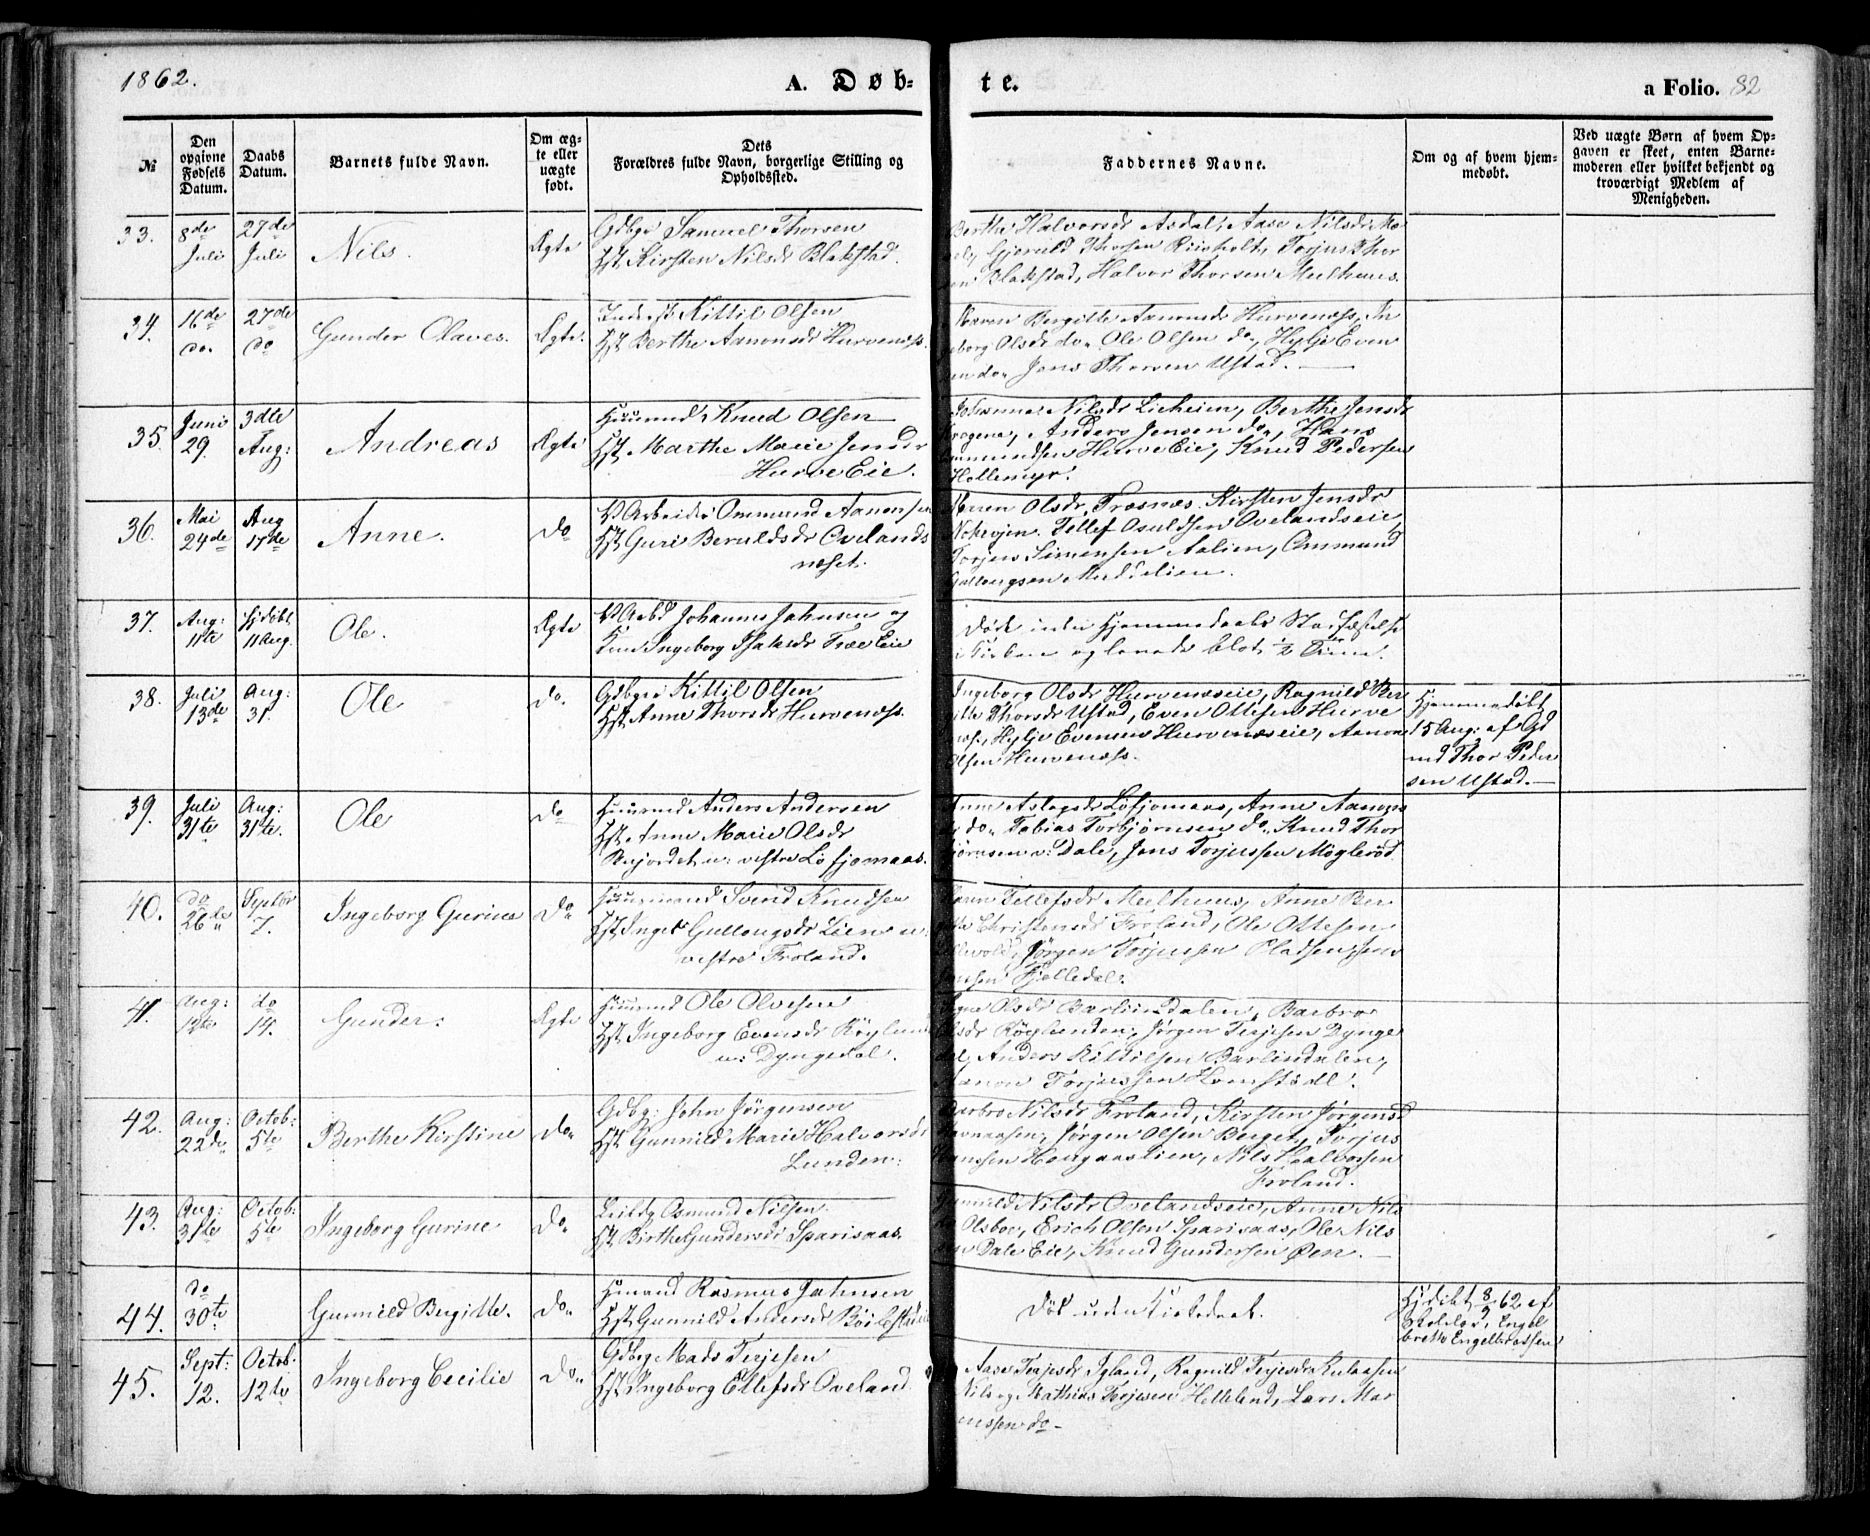 1862.
A. Døb-
te.
a Folio. 82
№
Den opgivne Fødsels Datum.
Daabs Datum.
Barnets fulde Navn.
Om ægte eller uægte født.
Dets
Forældres fulde Navn, borgerlige Stilling og
Opholdssted.
Faddernes Navne.
Om og af hvem hjem-
medøbt.
Ved uægte Børn af hvem Op-
gaven er skeet, enten Barne-
moderen eller hvilket bekjendt og
troværdigt Medlem af
Menigheden.
33.
8de
Juli
27de
Juli
Nils.
Ægte
Gdbgr Samuel Thorsen
Hst. Kirsten Nilsdr Blakstad.
Berthe Halvorsdr Asdal, Aase Nilsdr
Gjeruld Thorsen Riisholt, Torjus Thor
Blakstad, Halvor Thorsen Melhuus.
34.
16de
do.
27de
do
Gunder Olaves.
Ægte.
Inderst Kittil Olsen
Hst. Berthe Aanonsdr Hurvenæs.
Maren Bergitte Aanonsdr Hurvenæs, In
geborg Olsdr do. Ole Olsen do, Hylje Even
sen do. Jens Thorsen Ustad.
35.
Juni
29.
3dte
Aug:
Andreas
Ægte
Huusmd. Knud Olsen
Hst. Marthe Marie Jensdr
Hurve Eie.
Johanne Nilsdr Lieheien, Berthe Jensdr
Anders Jensen do, Hans
Hurve Eie, Knud Pedersen
Hollemyr.
36.
Mai
24de
Aug
17de
Anne.
do
V Arbeider Ommund Aanonsen
Hst. Guri Beruldsdr Ovelands
næset.
Maren Olsdr Træsnæs. Kirsten Jensdr
Tellef Osuldsen Ovelandseie,
Torjus Simensen Aalien, Ommund
Gullougsen
37.
Aug:
11te
Hjdøbt
11 Aug.
Ole.
Ægte
V Arbd Johannes Jahnsen og
Kone Ingeborg Isaksdr Træe Eie
Døde inden Hjemmedaabs Stadfæstelse
i Kirken og levede blot 1/2 Time.
38.
Juli
13de
Aug:
31.
Ole
do.
Gdbgr Kittil Olsen
Hst. Anne Thorsdr Hurvenæs.
Ingeborg Olsdr Hurvenæseie, Ragnild Ber
gitte Thorsdr Ustad, Even Ottesen Hurve
næs, Hylje Evensen Hurvenæseie, Aanon
Olsen Hurvenæs.
Hjemmedøbt
15 Aug: af Gd
md Thor Peder
sen Ustad.
39.
Juli
31te
Aug:
31te.
Ole
do
Huusmd Anders Andersen
Hst. Anne Marie Olsdr
u: vestre Løfjomaas.
Anne Aslagsdr Løfjomaas, Anne Aanons
dr do. Tobias Torbjørnsen do. Knud Thor
bjørnsen v: Dale, Jens Torjussen Møglerød.
40.
do
26de
Septbr
7.
Ingeborg Gurine
do.
Huusmand Svend Knudsen
Hst. Inger Gullougsdr Lien u:
vestre Froland.
Tellefsdr Melhuus, Anne Ber
the Christensdr Froland, Ole Ottesen
Jørgen Torjussen Pladsen, Jens
Fjelledal.
41.
Aug:
do
14.
Gunder:
Ægte
Huusmd Ole Olvesen
Hst. Ingeborg Evensdr Røylund
u: Dyngedal.
Olsdr Barlindalen, Barbro
Olsdr Røylunden, Jørgen Terjesen Dynge
dal, Anders Kittilsen Barlindalen,
Aanon Torjussen
42.
Aug:
22de
Octob:
5te
Berthe Kirstine
do.
Gdbg: John Jørgensen
Hst. Gunnild Marie Halvorsdr
Lunden.
Barbro Nilsdr Froland, Kirsten Jørgensd
Jørgen Olsen Berget, Torjus
Hougaaslien, Nils Halvorsen
Froland.
43.
Aug:
31te
Octob:
5te
Ingeborg Gurine
do.
Leilbg Osmund Nilsen
Hst. Birthe Gundersdr Sparisaas.
Gunnild Nilsdr Ovelandseie, Anne Nils
dr Olsboe, Erich Olsen Sparisaas, Ole Nils
sen Dale Eie, Knud Gundersen Øen.
44.
do
30te
Gunnild Birgitte.
do.
Hmand Rasmus Jahnsen
Hst. Gunnild Andersdr Bøilestadeie
Død uden Kirkedaab.
Hjdøbt 8/9 62 af
Skolelær. Engel
brekt Engelbretsen
45.
Sept:
12.
Octob.
12te
Ingeborg Cecilie
do.
Gdbg Mads Terjesen
Hst. Ingeborg Ellefsdr Oveland
Aase Terjesdr Igland, Ragnild Terjesdr Rulaasen
Nils og Mathias Terjesen Helleland, Lars Mar
cussen do